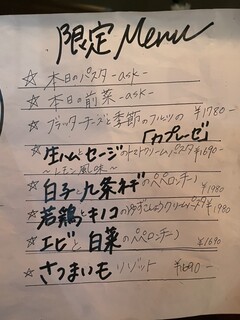 限定 Menu
☆ 本日のパスタ -ask-
☆ 本日の前菜 -ask-
☆ ブラッターチーズと季節のフルーツの ¥1780-
「カプレーゼ」
☆ 生ハムとセージのトマトクリームパスタ ¥1690-
～レモン風味～
☆ 白子と九条ネギのペペロンチーノ ¥1980
☆ 若鶏とキノコのゆずこしょうクリームパスタ ¥1980
☆ エビと白菜のペペロンチーノ ¥1690
☆ さつまいもリゾット ¥1690-